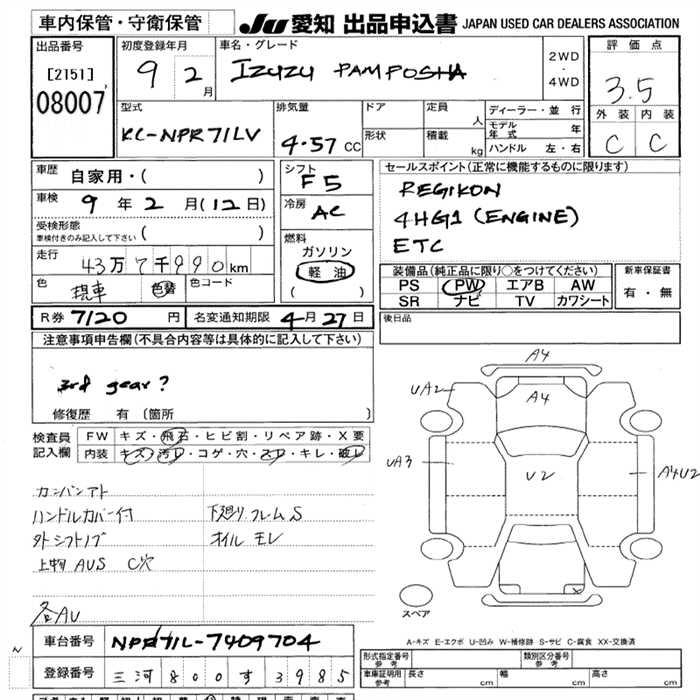 車内保管・守衛保管
JU 愛知 出品申込書 JAPAN USED CAR DEALERS ASSOCIATION
出品番号
[2151]
08007
初度登録年月
9 2 月
車名・グレード
IZUZU PAMPOSHA
2WD
・
4WD
評価点
3.5
外装 内装
C C
型式
KC-NPR71LV
排気量
4.57 CC
ドア
形状
定員 人
積載 kg
ディーラー・並 行
モデル年式 年
ハンドル 左・右
車歴
自家用・( )
車検
9 年 2 月(12日)
受検形態
車検付きのみ記入して下さい ( )
走行
43万7千990km
色
現車
色替
色コード
シフト
F5
冷房
AC
燃料
ガソリン
軽油
( )
セールスポイント(正常に機能するものに限ります)
REGIKON
4HG1 (ENGINE)
ETC
装備品(純正品に限り○をつけてください)
PS PW エアB AW
SR ナビ TV カワシート
新車保証書
有・無
R券 7120 円
名変通知期限 4月27日
後日品
注意事項申告欄(不具合内容等は具体的に記入して下さい)
3rd gear?
修復歴 有 〔箇所 〕
検査員記入欄
FW キズ・飛石・ヒビ割・リペア跡・X要
内装 キズ・汚レ・コゲ・穴・スレ・キレ・破レ
カンバンアト
ハンドルカバー付
外シフトノブ
上物 AUS C穴
各AU
下廻り.フレムS
オイルモレ
A4
UA2
A4
UA3
U2
A4U2
X
スペア
A-キズ E-エクボ U-凹み W-補修跡 S-サビ C-腐食 XX-交換済
車台番号
NPR71L-7409704
登録番号
三河800す3985
N
形式指定番号
参考
類別区分番号
参考
車庫証明用
参考
長さ cm
幅 cm
高さ cm